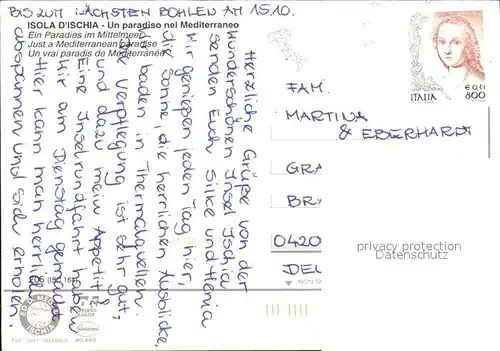 BIS ZUM NÄCHSTEN BOHLEN AM 15.10.
ISOLA D'ISCHIA - Un paradiso nel Mediterraneo
Ein Paradies im Mittelmeer
Just a Mediterranean paradise
Un vrai paradis de Mediterranée
Herzliche Grüße von der
wunderschönen Insel Ischia
senden Euch Silke und
Wir genießen jeden Tag hier,
die Sonne, die herrlichen Ausblicke,
baden in Thermalquellen.
Die Verpflegung ist sehr gut,
und dazu mein Appetit!
Eine Inselrundfahrt haben
wir am Dienstag gemacht.
Hier kann man herrlich
abspannen und sich erholen.
ITALIA
€ 0,41
800
FAM.
MARTINA
& EBERHARDT
GRA
BRA
0420
DEU
privacy protection
VeryPrivacy.com
NON
ISCHIA
MILANO